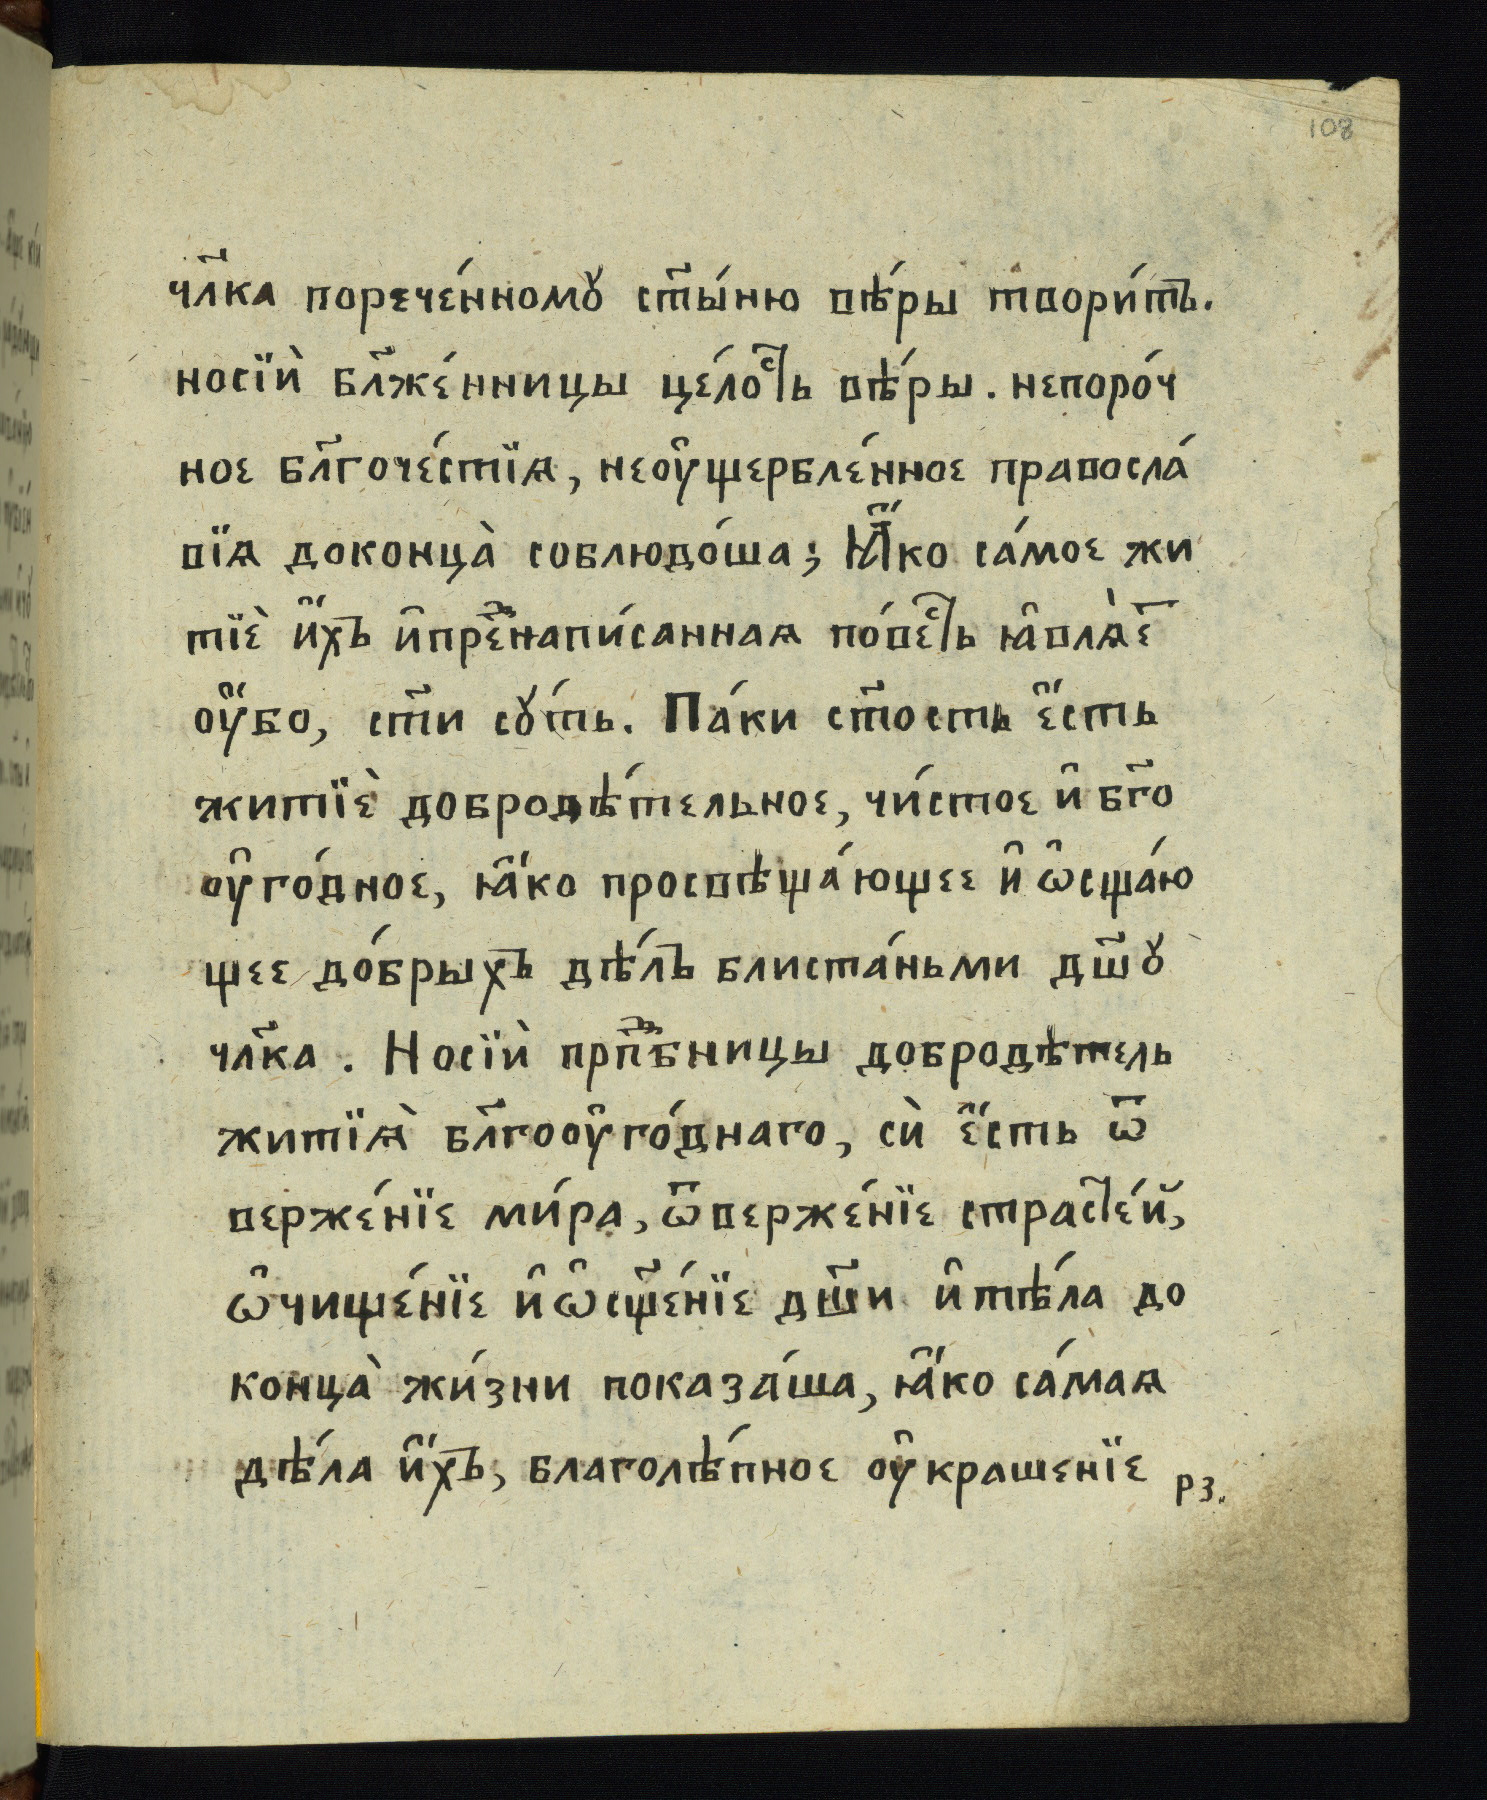 108
чл҃ка порече́нномꙋ ст҃ы́ню вѣ́ры твори́тъ.
носїѝ бл҃же́нницы це́лоⷭ҇ть вѣ́ры. непоро́ч
ное бл҃гоче́стїѧ, неоу҆щербле́нное правосла́
вїѧ доконца̀ соблюдо́ша; Ꙗ҆́ко са́мое жи
тїѐ и҆́хъ и҆пре́ⷤнапи́санная по́веⷭ҇ть ꙗ҆влѧ̀еⷮ
оу҆́бо, ст҃и сꙋ́ть. Па́ки ст҃ость є҆́сть
житїѐ добродѣ́тельное, чи́стое и҆ бг҃о
оу҆го́дное, ꙗ҆́ко просвѣща́ющее и҆ ѡ҆сща́ю
щее до́брыхъ дѣ́лъ блиста́ньми дш҃ꙋ
чл҃ка. Носїѝ прпⷣбницы добродѣтель
житїѧ̀ бл҃гооу҆го́днаго, сѝ є҆́сть ѿ
верже́нїе ми́ра, ѿверже́нїе страⷭ҇те́й,
ѡ҆чище́нїе и҆ѡ҆сщ҃е́нїе дш҃и и҆тѣ́ла до
конца̀ жи́зни показа́ша, ꙗ҆́ко са́маѧ
дѣ́ла и҆́хъ, благолѣ́пное оу҆крашенїе
рз.